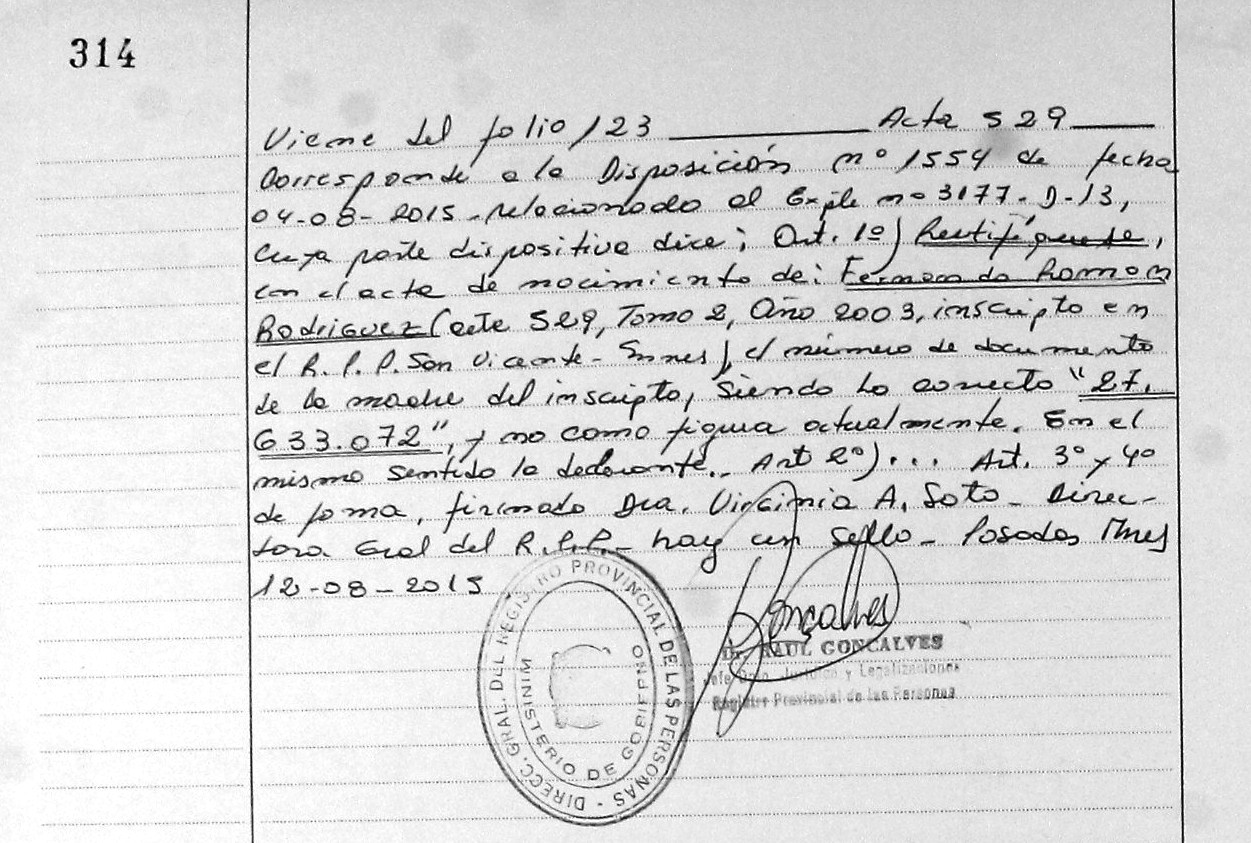 314
Viene del folio 123 Acta 529
Corresponde a la Disposición nº 1554 de fecha
04-08-2015 - relacionado al Expte nº 3177-D-13,
cuya parte dispositiva dice; Art. 1º) Rectifíquese,
en el acta de nacimiento de: Fernando Ramon
Rodriguez (acta 529, Tomo 2, Año 2003, inscripto en
el R.P.P. San Vicente - Mnes), el número de documento
de la madre del inscripto, siendo lo correcto "27.
633.072", y no como figura actualmente. En el
mismo sentido la declarante.. Art 2º)... Art. 3º y 4º
de forma, firmado Dra. Virginia A. Soto - Direc-
tora Gral del R.P.P. - hay un sello - Posadas Mnes
12-08-2015.
DIRECC. GRAL. DEL REGISTRO PROVINCIAL DE LAS PERSONAS -
MINISTERIO DE GOBIERNO
Goncalves
Dr. RAUL GONCALVES
Jefe Dpto. Jurídico y Legalizaciones
Registro Provincial de las Personas